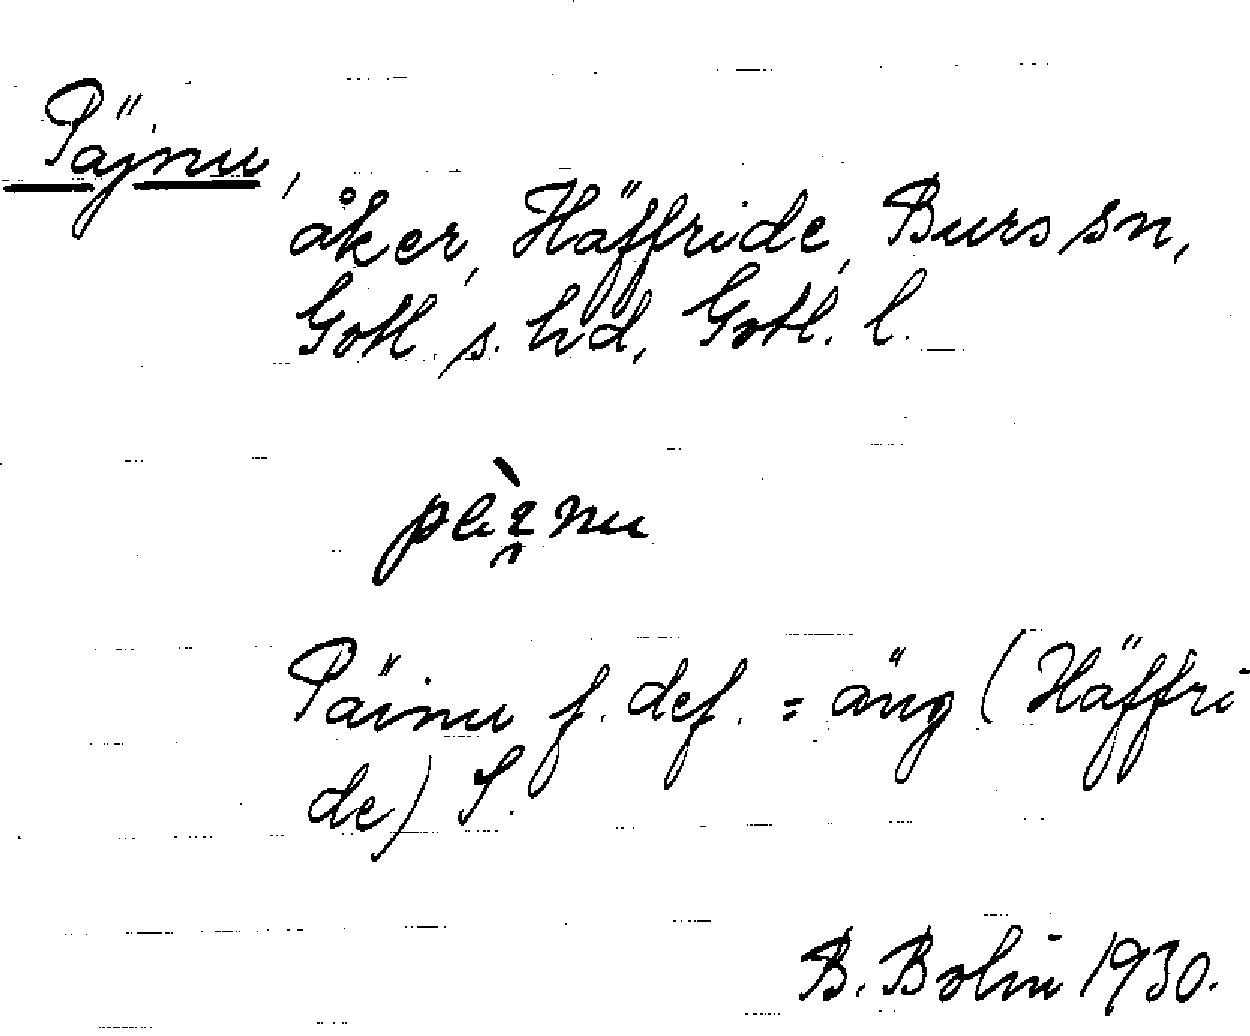 Päjnu,
åker, Häffride, Burs sn,
Gotl. s. hd, Gotl. l.
Päinu f. def. = äng (Häffri-
de) S.
B. Bolin 1930.